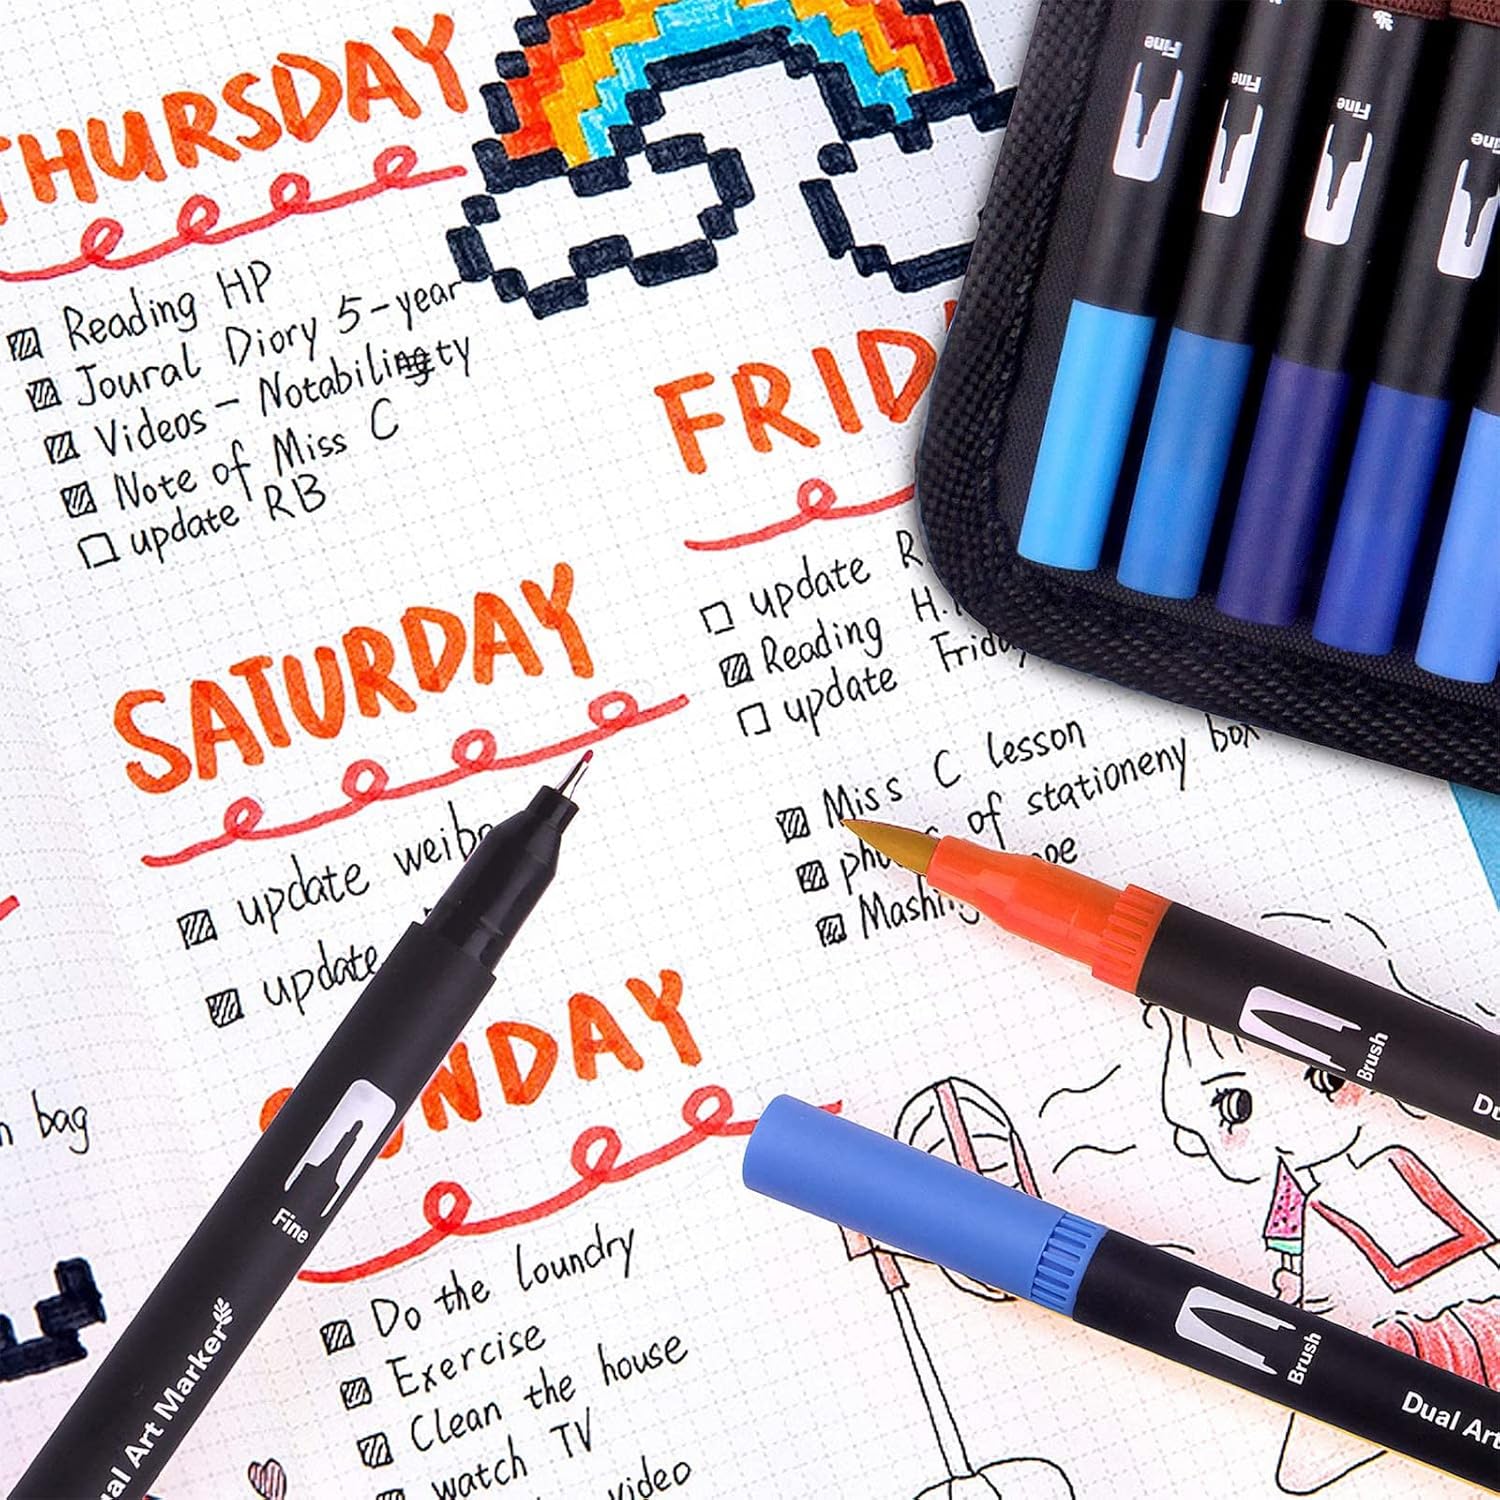 THURSDAY
Reading HP
Joural Diory 5-year
Videos - Notability
Note of Miss C
update RB
FRID
update R
Reading H.
update Friday
Miss C lesson
of stationeny box
Mashing
SATURDAY
update weibo
update
SUNDAY
Do the loundry
Exercise
Clean the house
watch TV
video
bag
Fine
Fine
Fine
Fine
Fine
Dual Art Marker
Brush
Brush
Dual Art